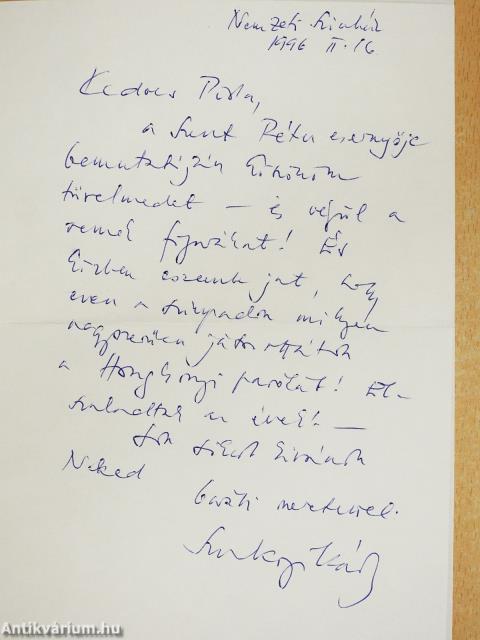 Nemzeti Színház
1996 II. 16.
Kedves Pista,
a Szent Péter esernyője
bemutatóján köszönöm
türelmedet — és végül a
remek figurákat! És
közben eszembe jut, hogy
ezen a színpadon milyen
nagyszerűen játszottátok
a Hongkongi parókát! El-
szaladtak az évek! —
Sok sikert kívánok
Neked
baráti szeretettel.
Antikvárium.hu